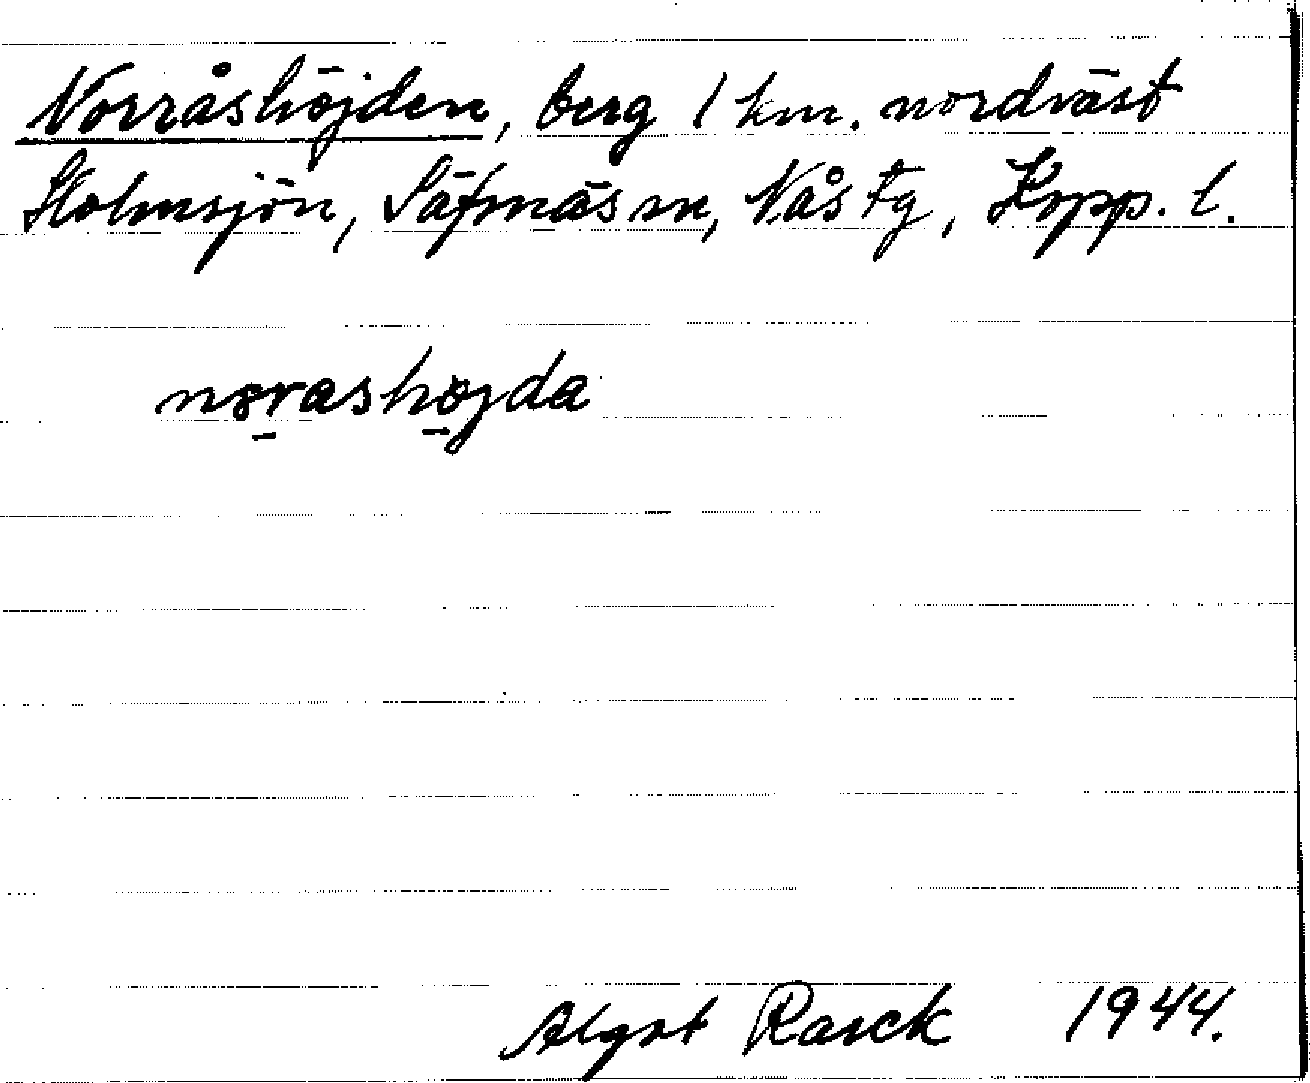 Norråshöjden, berg 1 km. nordväst
Holmsjön, Säfsnäs sn, Nås tg, Kopp. l.
nørashøjda
Algot Rasck 1944.